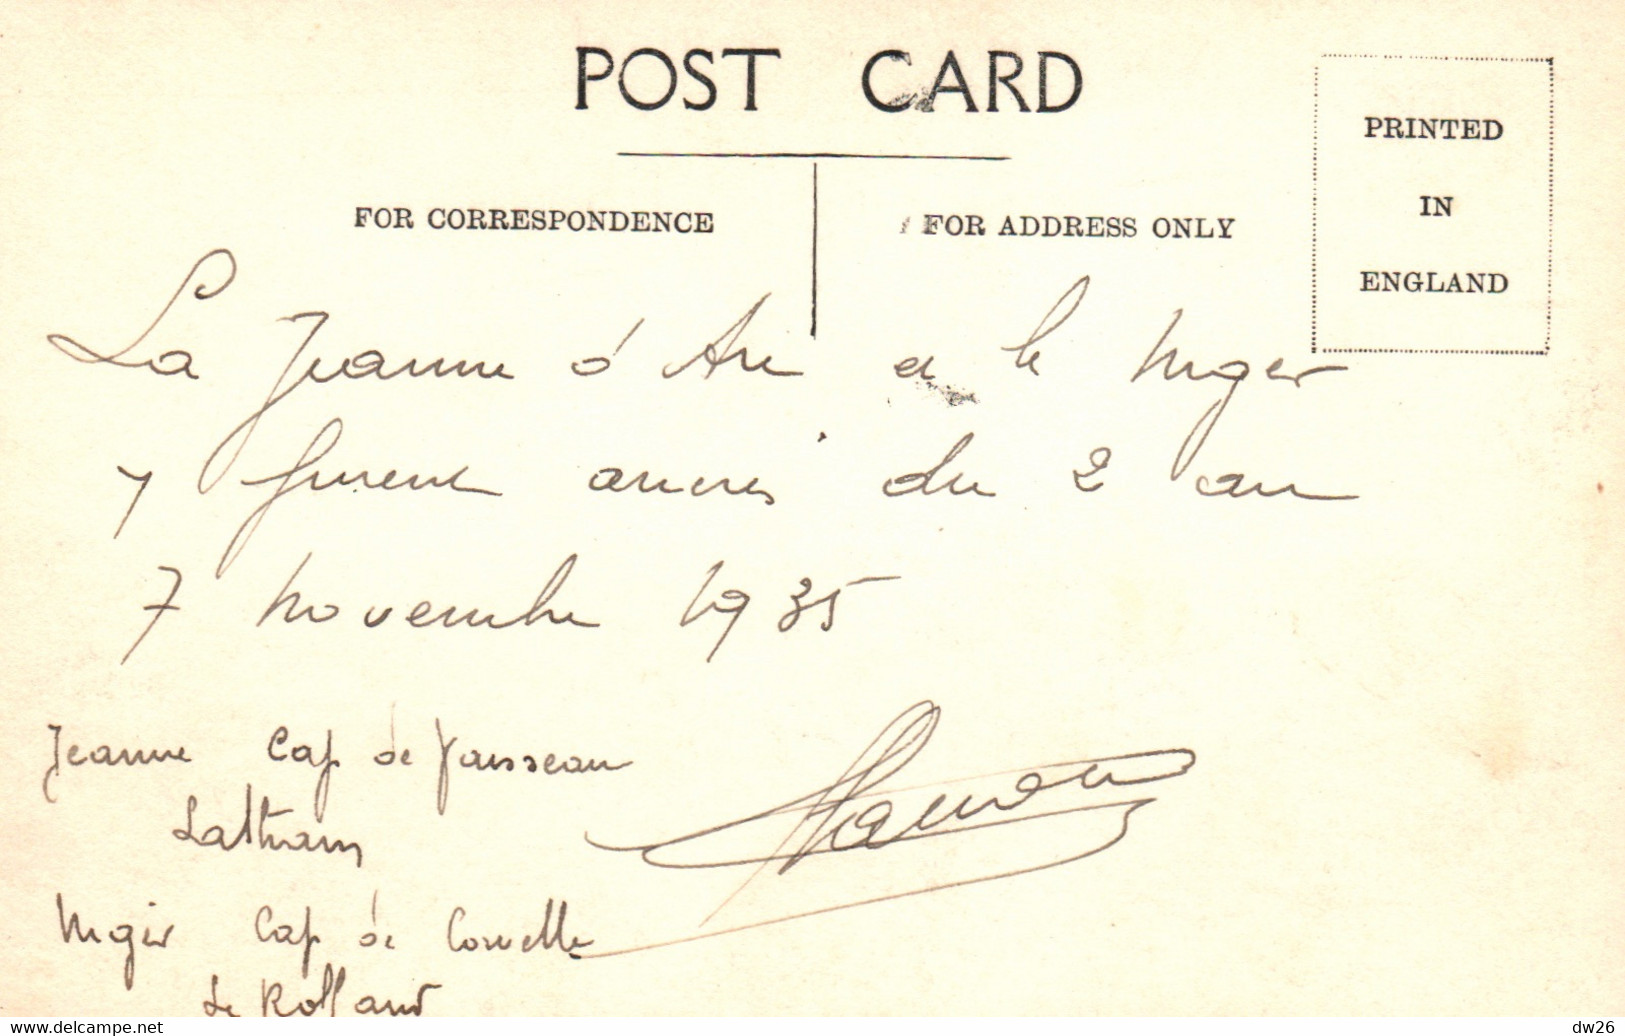 POST CARD
PRINTED
IN
ENGLAND
FOR CORRESPONDENCE
FOR ADDRESS ONLY
La Jeanne d'Arc et le Niger
y furent ancrés du 2 au
7 novembre 1935
Jeanne Cap de Vaisseau
Latham
Niger Cap de Corvette
Le Rolland
www.delcampe.net
dw26